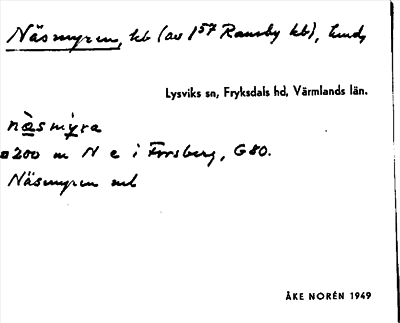 Näsmyren, kb (av 1⁵⁷ Ransby kb),
Lysviks sn, Fryksdals hd, Värmlands län.
nä̀smỳra
200 m N e i Forsberg, G80.
Näsmyren mb
ÅKE NORÉN 1949